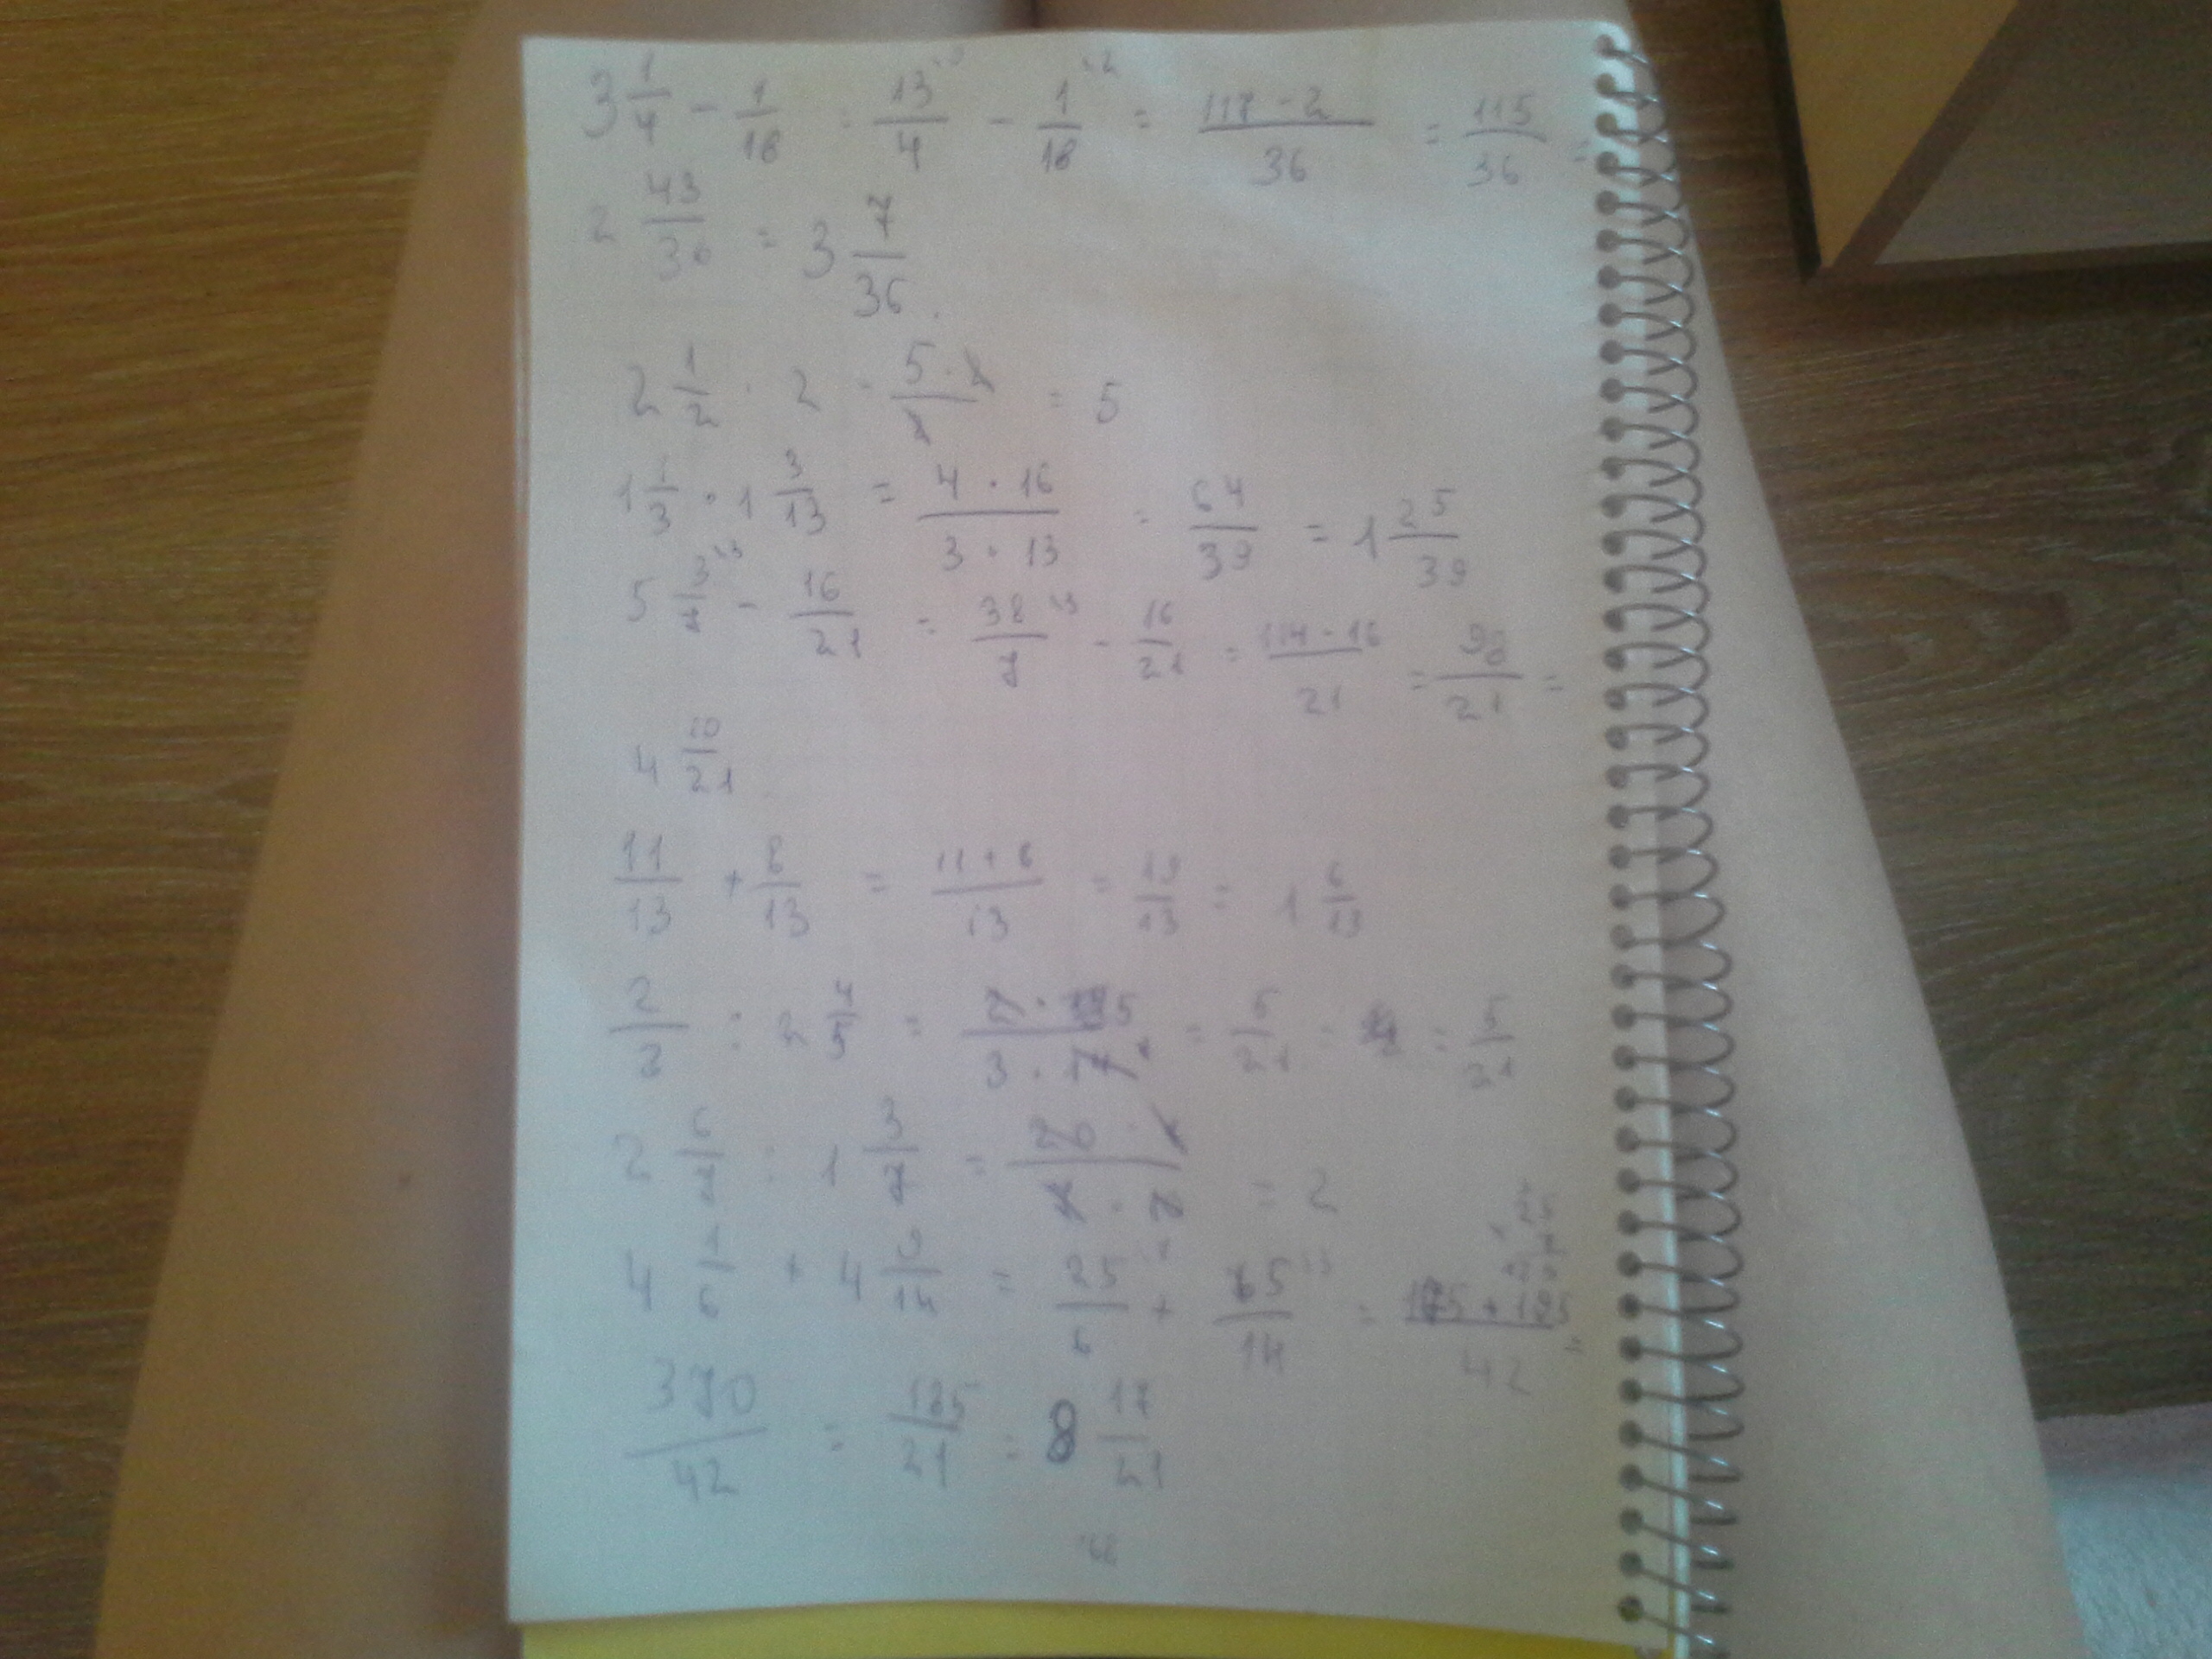 3 1/4 - 1/18 = 13/4 - 1/18 = 117-2/36 = 115/36 =
2 43/36 = 3 7/36.
2 1/2 · 2 = 5·2/2 = 5
1 1/3 · 1 3/13 = 4·16/3·13 = 64/39 = 1 25/39
5 3/7 - 16/21 = 38/7 - 16/21 = 114-16/21 = 98/21 =
4 10/21
11/13 + 8/13 = 11+8/13 = 19/13 = 1 6/13
2/3 : 2 4/5 = 5/21 = 5/21
2 6/7 : 1 3/7 = 2
4 1/6 + 4 9/14 = 25/6 + 65/14 = 175+195/42 =
370/42 = 185/21 = 8 17/21